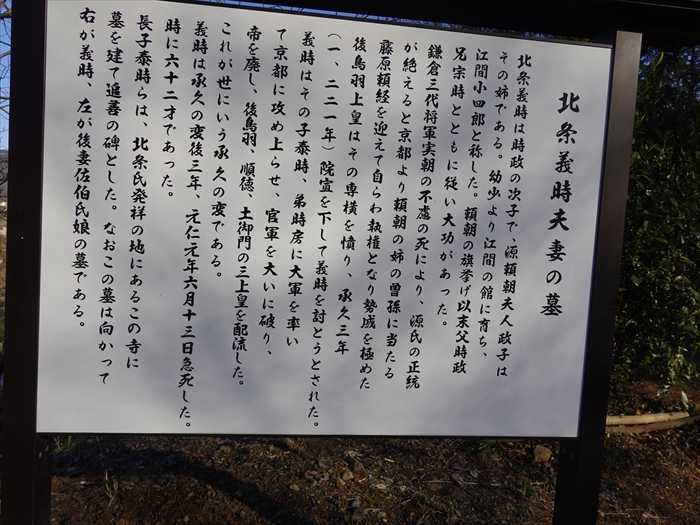 北条義時夫妻の墓
北条義時は時政の次子で、源頼朝夫人政子は
その姉である。幼少より江間の館に育ち、
江間小四郎と称した。頼朝の旗挙げ以来父時政
兄宗時とともに従い大功があった。
鎌倉三代将軍実朝の不慮の死により、源氏の正統
が絶えると京都より頼朝の姉の曽孫に当たる
藤原頼経を迎えて自らわ執権となり勢威を極めた
後鳥羽上皇はその専横を憤り、承久三年
（一、二二一年）院宣を下して義時を討とうとされた。
義時はその子泰時、弟時房に大軍を率い
て京都に攻め上らせ、官軍を大いに破り、
帝を廃し、後鳥羽、順徳、土御門の三上皇を配流した。
これが世にいう承久の変である。
義時は承久の変後三年、元仁元年六月十三日急死した。
時に六十二才であった。
長子泰時らは、北条氏発祥の地にあるこの寺に
墓を建て追善の碑とした。なおこの墓は向かって
右が義時、左が後妻佐伯氏娘の墓である。